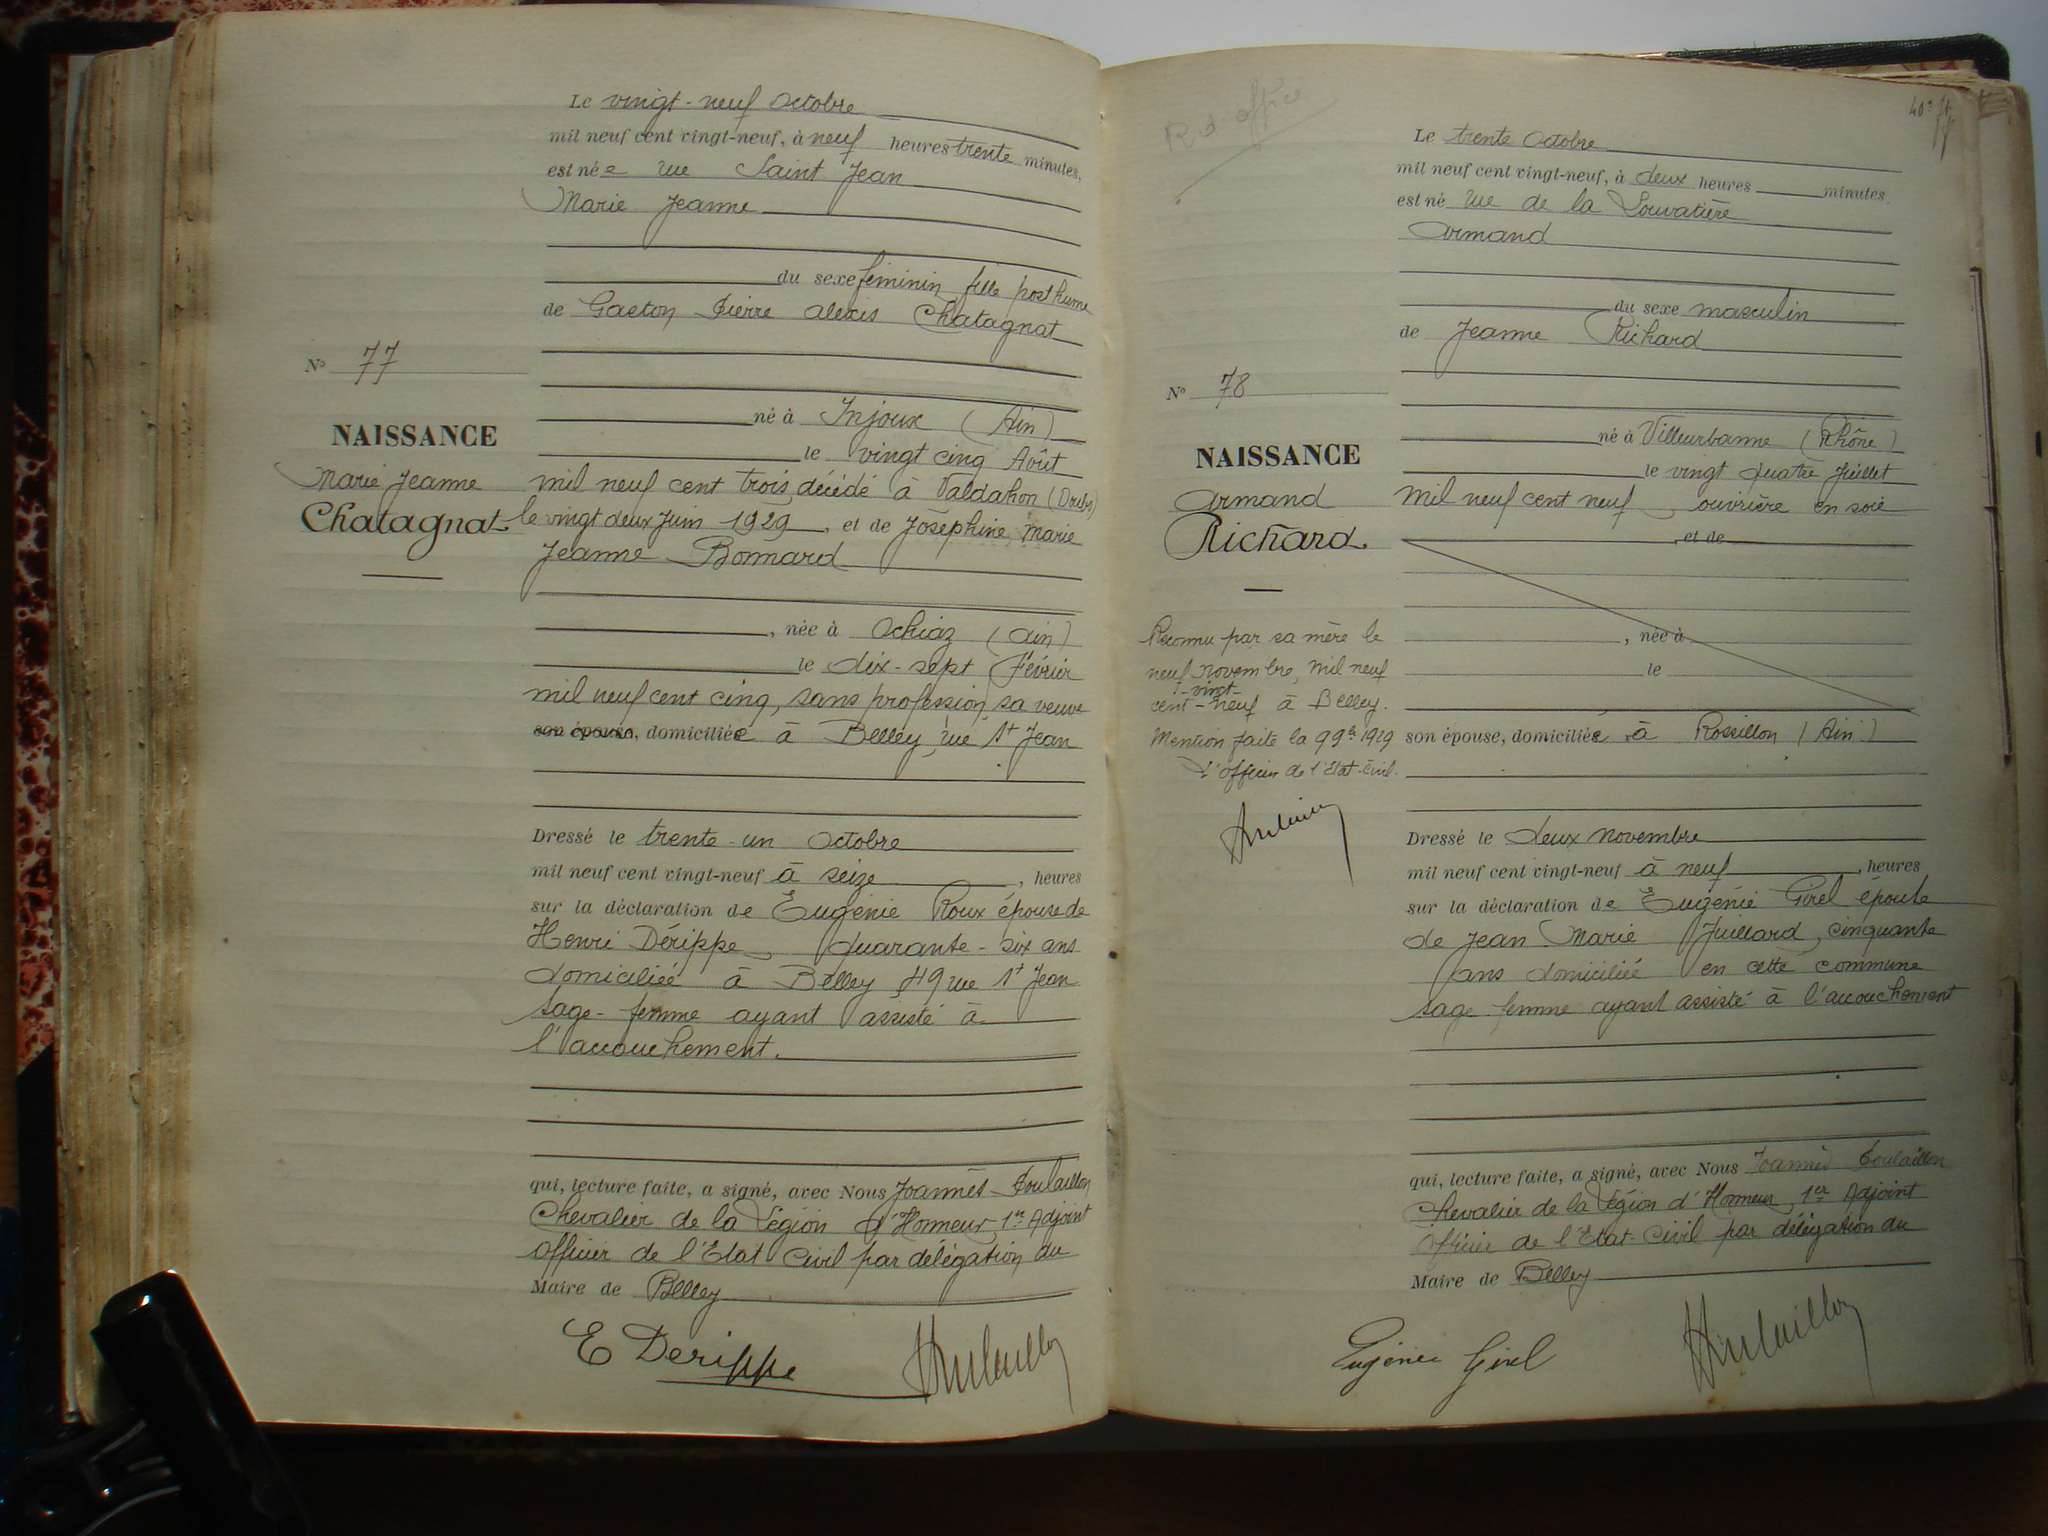 Le vingt-neuf Octobre
mil neuf cent vingt-neuf, à neuf heures trente minutes,
est née rue Saint Jean
Marie Jeanne
du sexe féminin fille posthume
de Gaston Pierre Alexis Chatagnat
N° 77
né à Injoux (Ain)
NAISSANCE
le vingt cinq Août
Marie Jeanne
mil neuf cent trois, décédé à Valdahon (Doubs)
Chatagnat
le vingt deux Juin 1929, et de Joséphine Marie
Jeanne Bonnard
, née à Ochiaz (Ain)
le dix-sept Février
mil neuf cent cinq, sans profession, sa veuve
son épouse, domiciliée à Belley, rue St Jean
Dressé le trente-un Octobre
mil neuf cent vingt-neuf à seize, heures
sur la déclaration de Eugénie Roux épouse de
Henri Dérippe, quarante-six ans
domiciliée à Belley, 49 rue St Jean
sage-femme ayant assisté à
l'accouchement.
qui, lecture faite, a signé, avec Nous Joannès Poulaillon
Chevalier de la Légion d'Honneur, 1er Adjoint
Officier de l'Etat Civil par délégation du
Maire de Belley
E Derippe
R. d'office
Le trente Octobre
mil neuf cent vingt-neuf, à deux heures minutes,
est né rue de la Louvatière
Armand
du sexe masculin
de Jeanne Richard
N° 78
né à Villeurbanne (Rhône)
NAISSANCE
le vingt quatre Juillet
Armand
mil neuf cent neuf, ouvrière en soie
Richard
, et de
Reconnu par sa mère le
neuf novembre, mil neuf
cent-vingt-neuf à Belley.
Mention faite le 9 9bre 1929
L'officier de l'Etat-Civil.
, née à
le
son épouse, domiciliée à Rossillon (Ain)
Dressé le deux novembre
mil neuf cent vingt-neuf à neuf, heures
sur la déclaration de Eugénie Girel épouse
de Jean Marie Juillard, cinquante
ans domiciliée en cette commune
sage femme ayant assisté à l'accouchement
qui, lecture faite, a signé, avec Nous Joannès Poulaillon
Chevalier de la Légion d'Honneur, 1er Adjoint
Officier de l'Etat-Civil par délégation du
Maire de Belley
Eugénie Girel